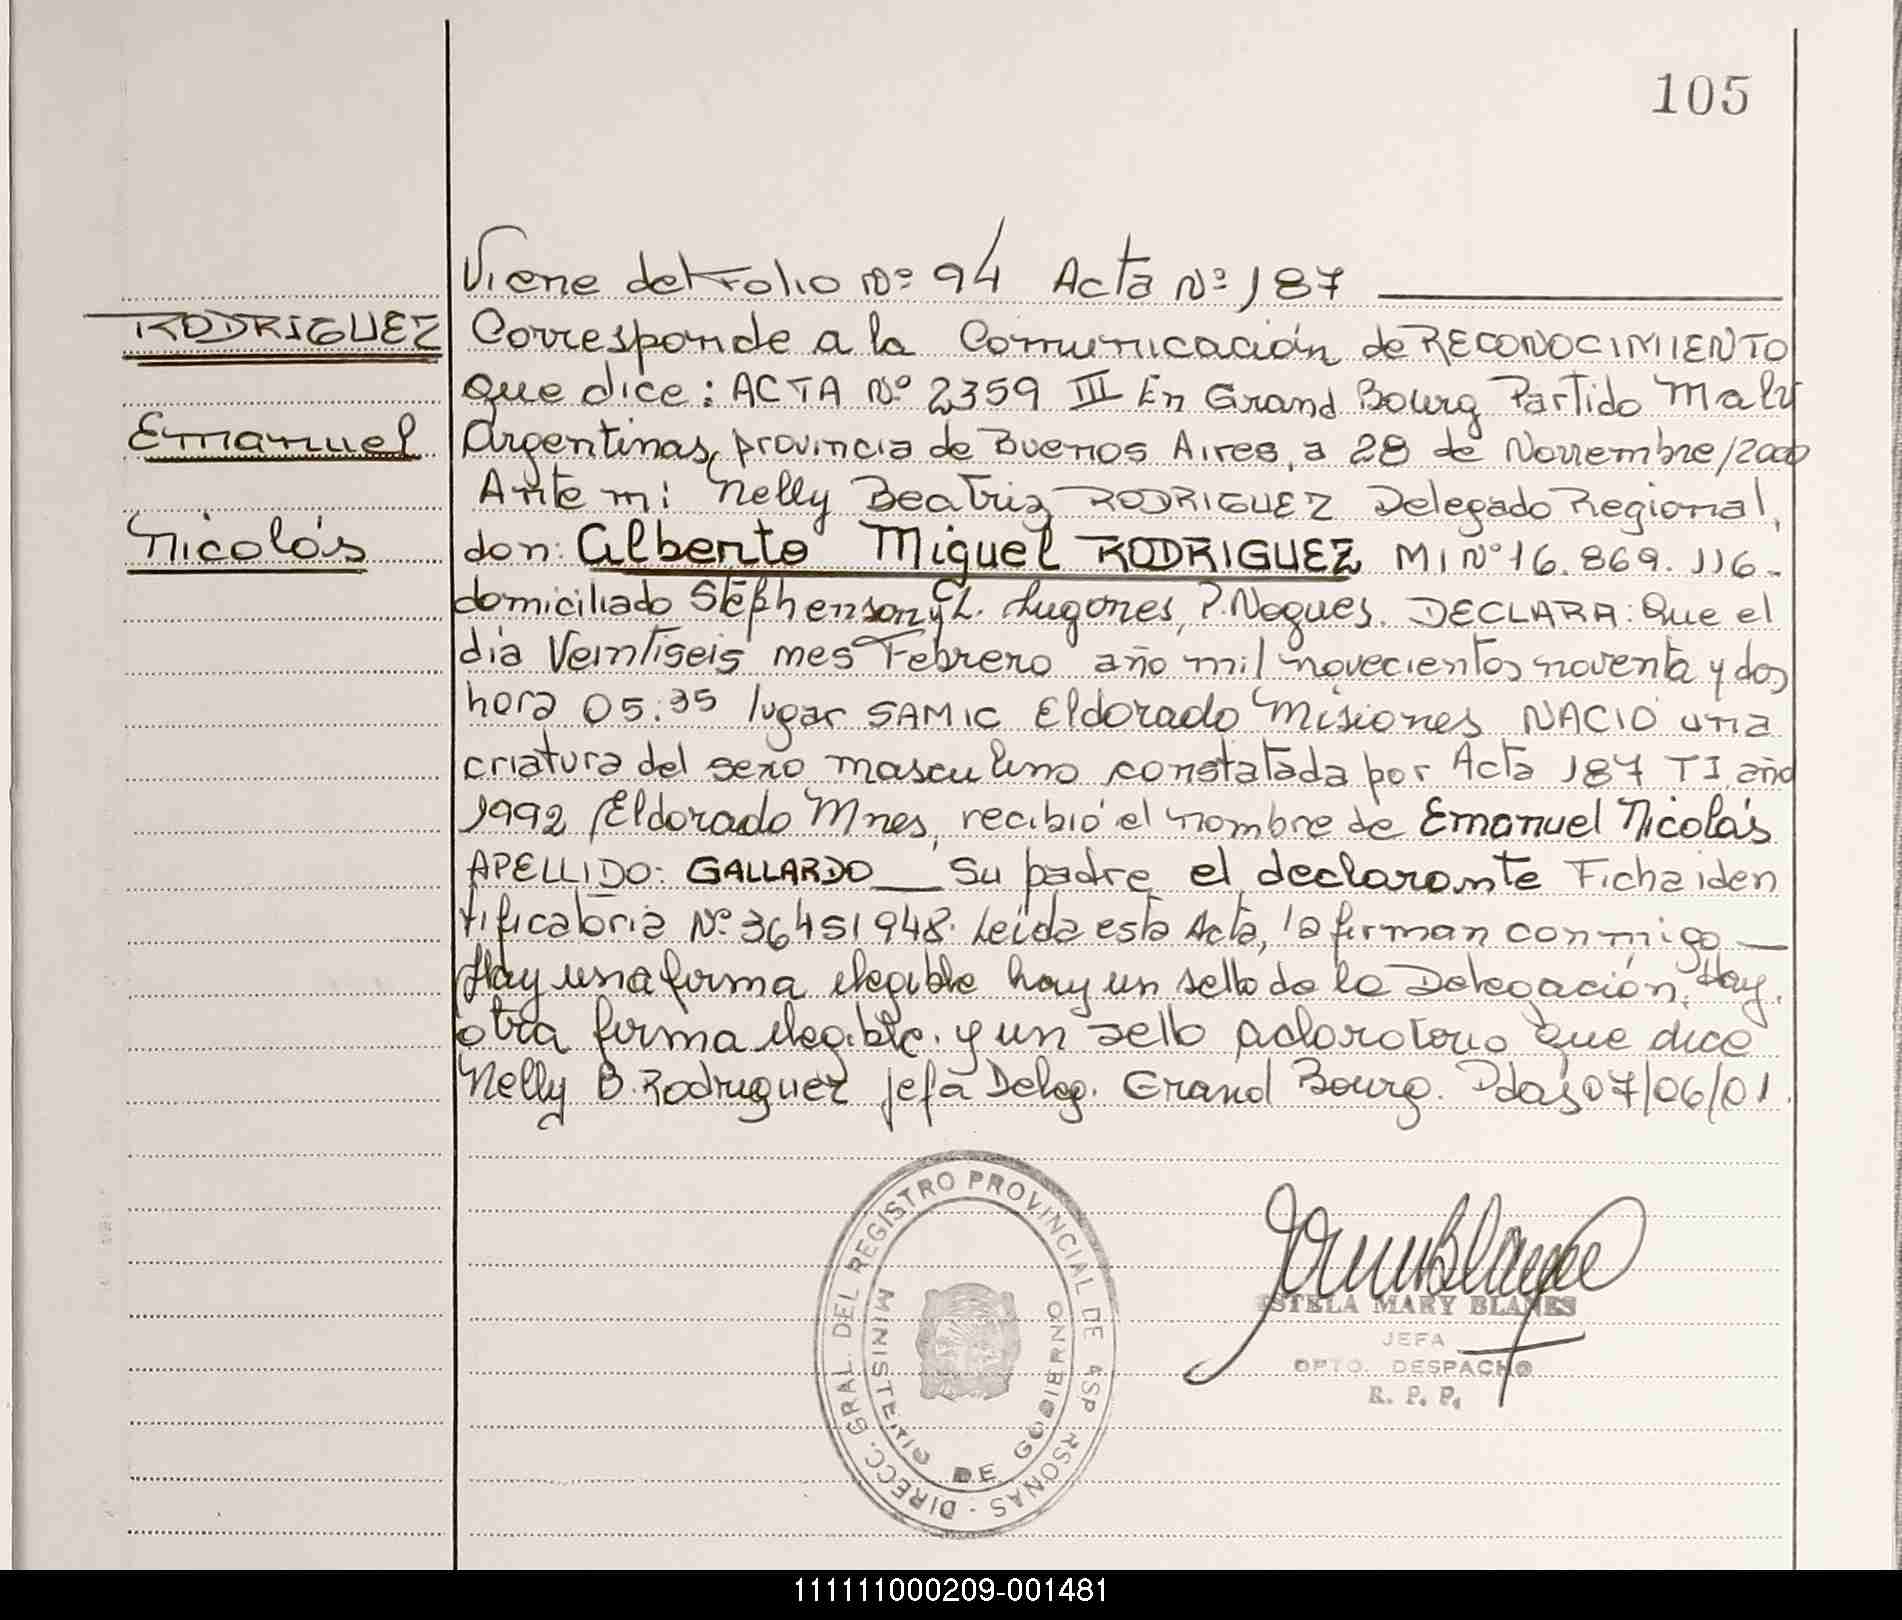 105
Viene del Folio Nº 94 Acta Nº 187
RODRIGUEZ
Emanuel
Nicolás
Corresponde a la Comunicación de RECONOCIMIENTO
que dice: ACTA Nº 2359 III En Grand Bourg Partido Malv
Argentinas, provincia de Buenos Aires, a 28 de Noviembre/2000
Ante mi Nelly Beatriz RODRIGUEZ Delegado Regional,
don: Alberto Miguel RODRIGUEZ MI Nº 16.869.116.
domiciliado Stephenson y L. Lugones, P. Nogues. DECLARA: Que el
dia Veintiseis mes Febrero año mil novecientos noventa y dos
hora 05:35 lugar SAMIC Eldorado Misiones NACIO una
criatura del sexo masculino constatada por Acta 187 TI año
1992 Eldorado Mnes, recibió el nombre de Emanuel Nicolás
APELLIDO: GALLARDO Su padre el declarante Ficha iden
tificatoria Nº 36451948. Leida esta Acta, la firman conmigo
Hay una firma ilegible hay un sello de la Delegación. Hay
otra firma ilegible. y un sello aclaratorio que dice
Nelly B. Rodriguez jefa Deleg. Grand Bourg. Pdas 07/06/01.
DIRECC. GRAL. DEL REGISTRO PROVINCIAL DE
MINISTERIO DE GOBIERNO
ESTELA MARY BLANES
JEFA
DPTO. DESPACHO
R. P. P.
111111000209-001481